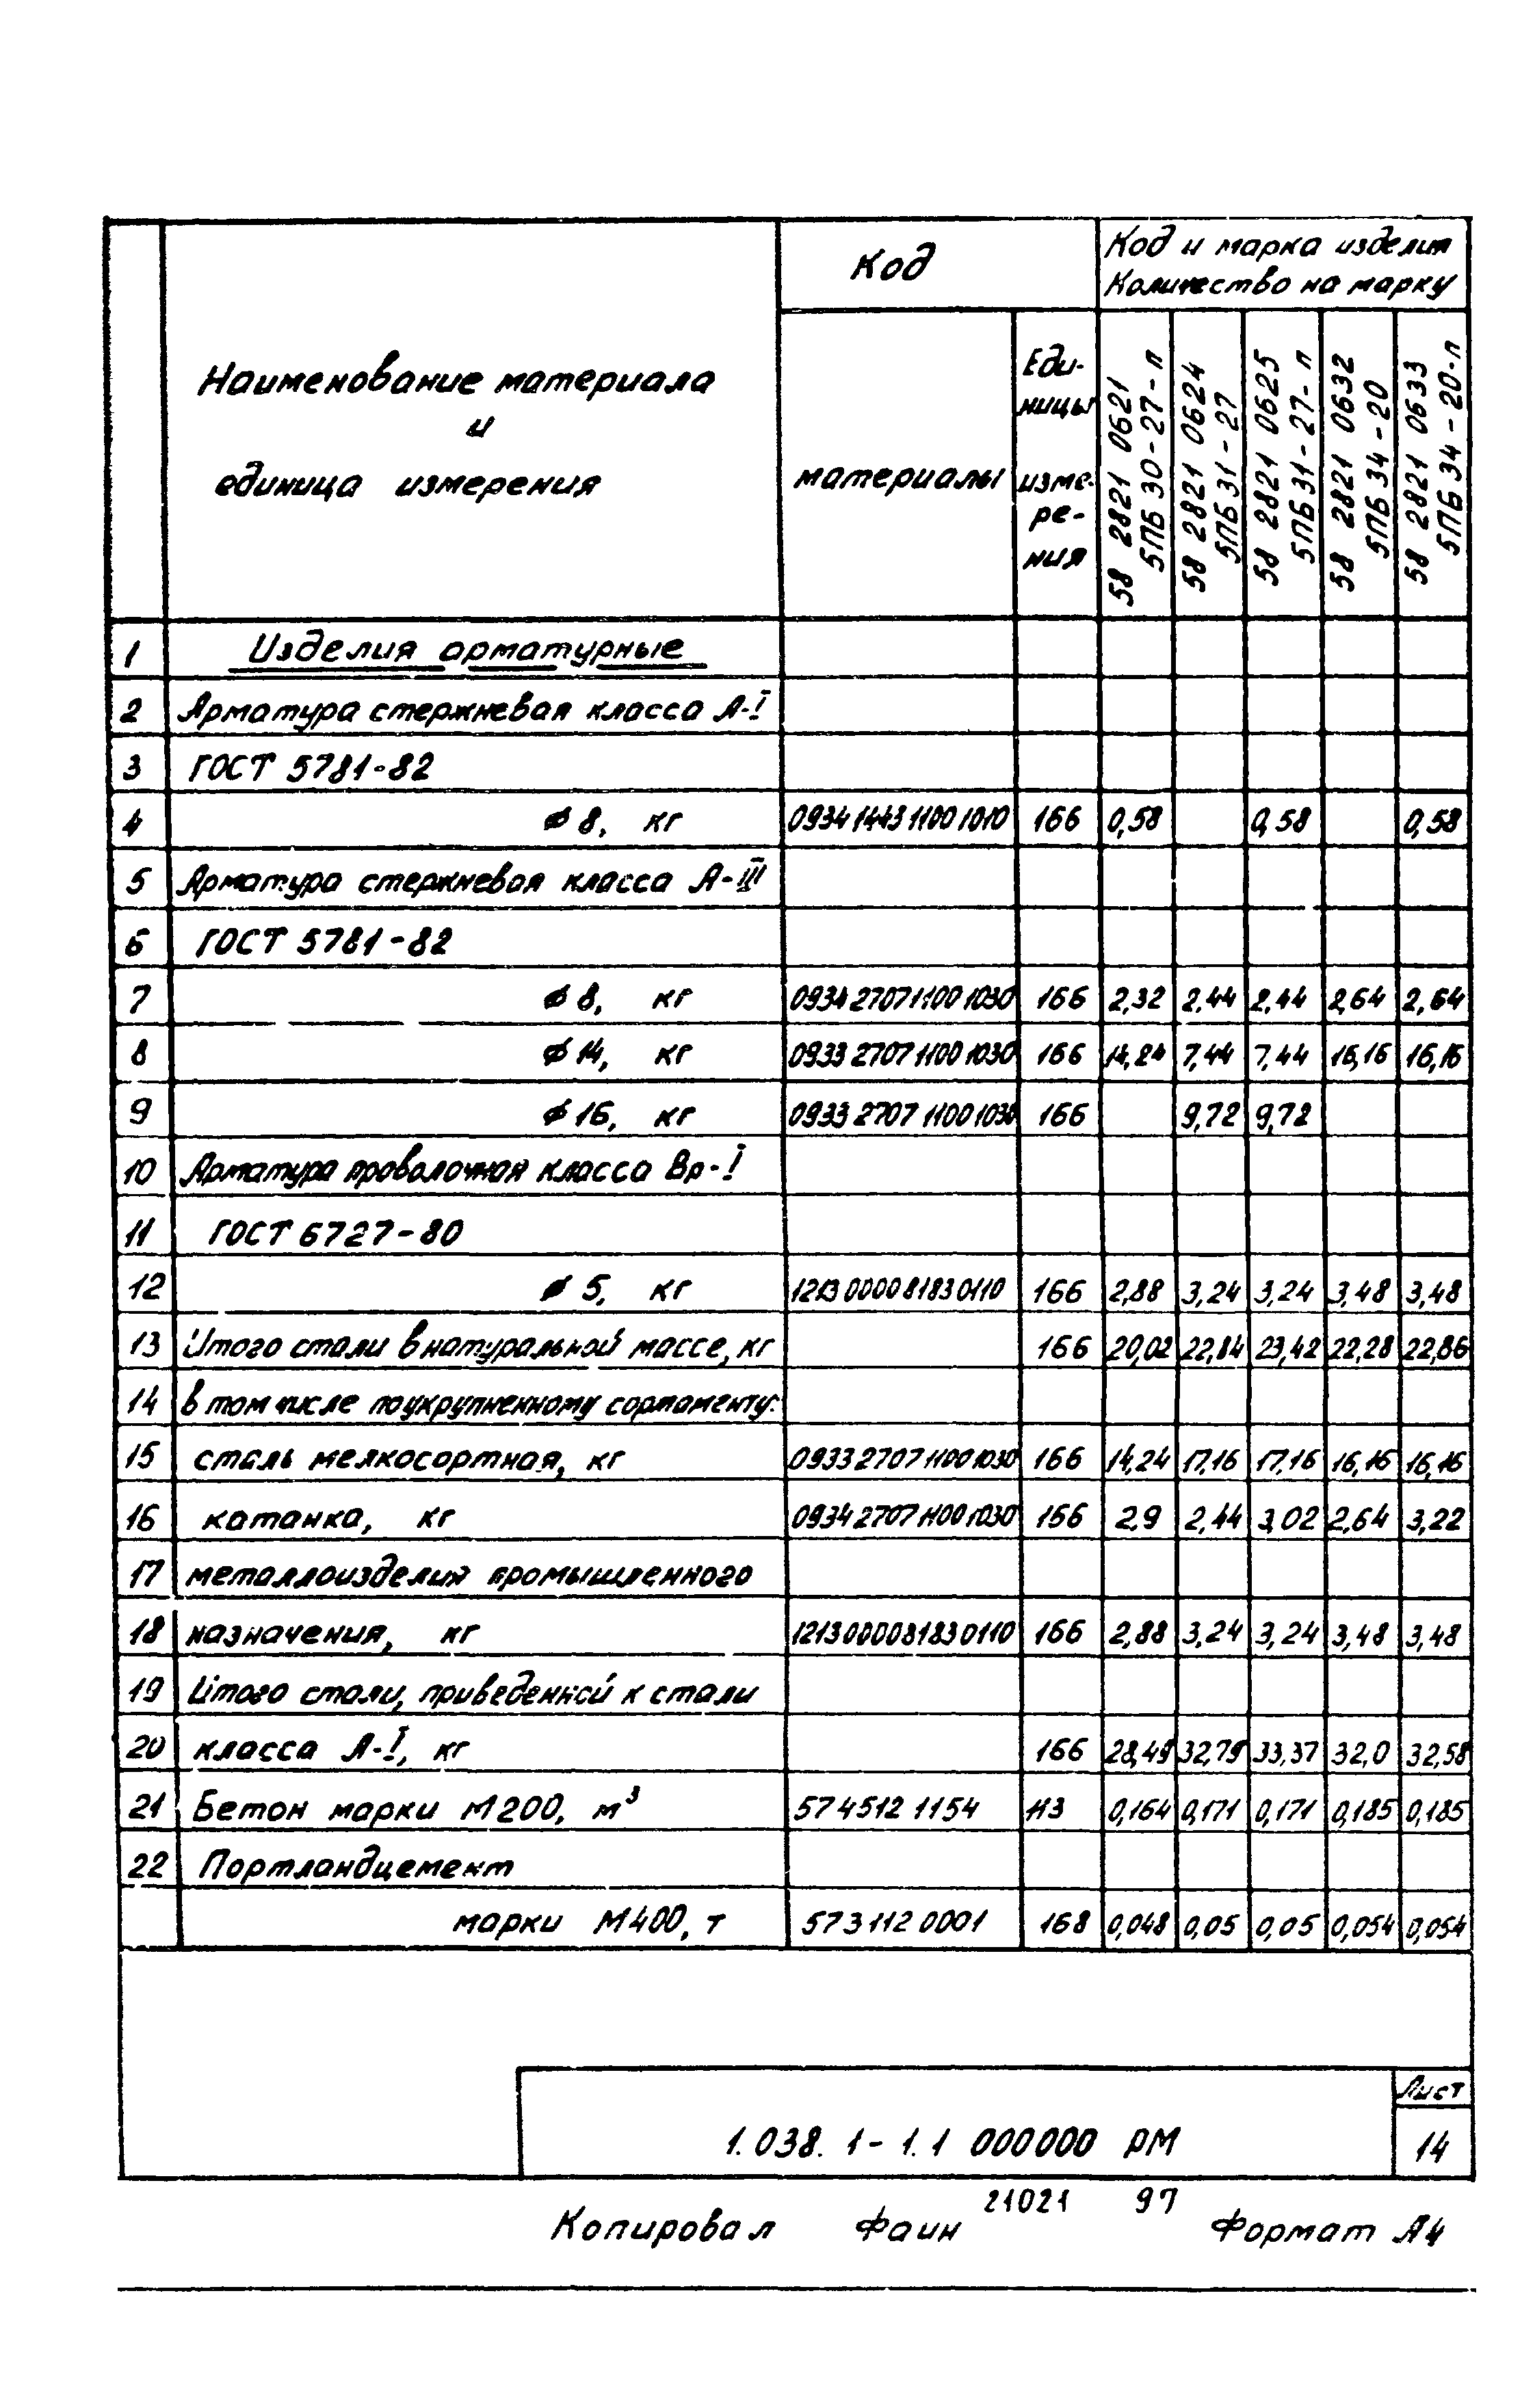 Наименование материала
и
единица измерения
Код
Код и марка изделия
Количество на марку
материалы
Еди-
ницы
изме-
ре-
ния
58 2821 0621
5ПБ 30-27-п
58 2821 0624
5ПБ 31-27
58 2821 0625
5ПБ 31-27-п
58 2821 0632
5ПБ 34-20
58 2821 0633
5ПБ 34-20-п
1 Изделия арматурные
2 Арматура стержневая класса А-I
3 ГОСТ 5781-82
4 ⌀ 8, кг 0934 1443 1100 1010 166 0,58 0,58 0,58
5 Арматура стержневая класса А-III
6 ГОСТ 5781-82
7 ⌀ 8, кг 0934 2707 1100 1030 166 2,32 2,44 2,44 2,64 2,64
8 ⌀ 14, кг 0933 2707 1100 1030 166 14,24 7,44 7,44 16,16 16,16
9 ⌀ 16, кг 0933 2707 1100 1030 166 9,72 9,72
10 Арматура проволочная класса Вр-I
11 ГОСТ 6727-80
12 ⌀ 5, кг 1213 0000 8183 0110 166 2,88 3,24 3,24 3,48 3,48
13 Итого стали в натуральной массе, кг 166 20,02 22,84 23,42 22,28 22,86
14 в том числе по укрупненному сортаменту:
15 сталь мелкосортная, кг 0933 2707 1100 1030 166 14,24 17,16 17,16 16,16 16,16
16 катанка, кг 0934 2707 1100 1030 166 2,9 2,44 3,02 2,64 3,22
17 металлоизделия промышленного
18 назначения, кг 1213 0000 8183 0110 166 2,88 3,24 3,24 3,48 3,48
19 Итого стали, приведенной к стали
20 класса А-I, кг 166 28,49 32,79 33,37 32,0 32,58
21 Бетон марки М200, м³ 574512 1154 113 0,164 0,171 0,171 0,185 0,185
22 Портландцемент
марки М400, т 573112 0001 168 0,048 0,05 0,05 0,054 0,054
1.038.1-1.1 000000 РМ
Лист
14
21021 97
Копировал Фаин Формат А4